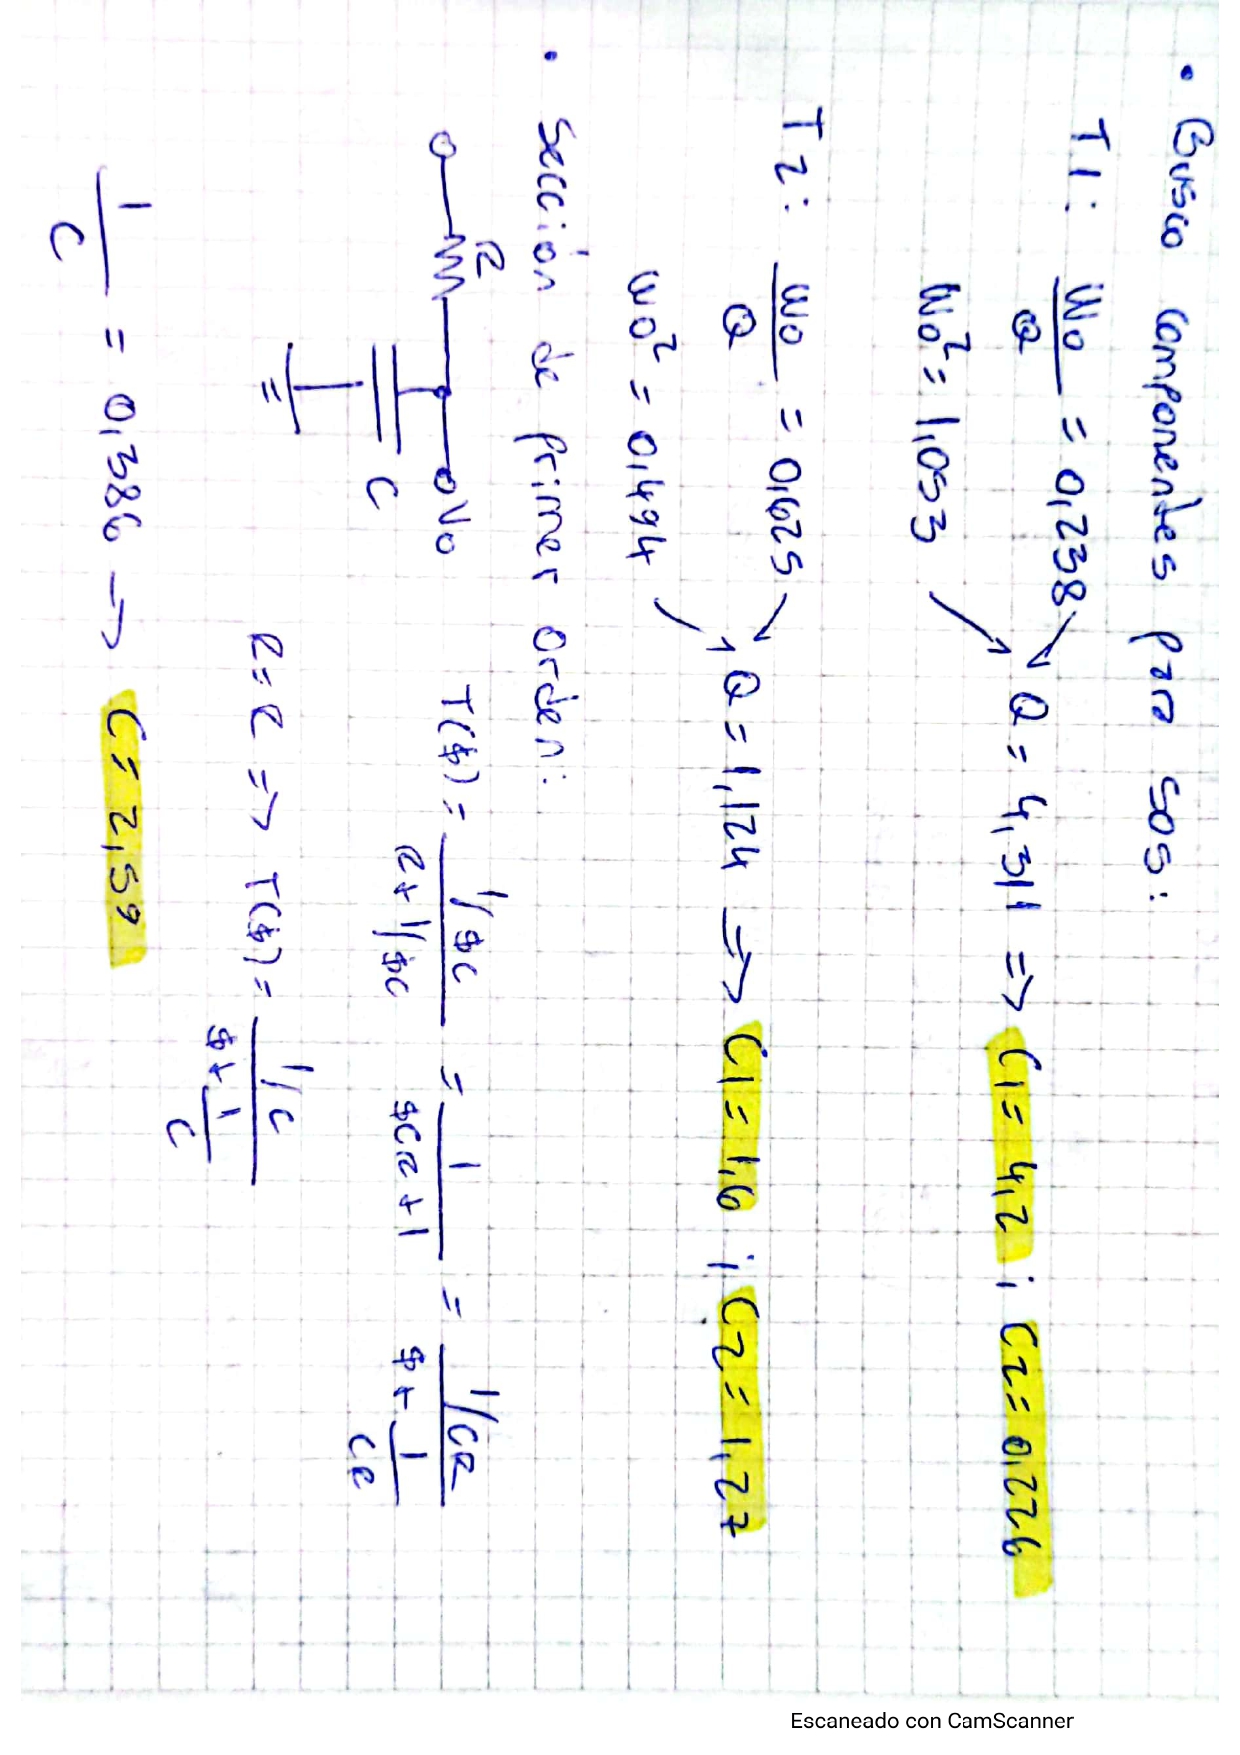 • Busco componentes para SOS:
T1: Wo/Q = 0,238
Q = 4,311 => C1 = 4,2 ; C2 = 0,226
Wo² = 1,053
T2: wo/Q = 0,625
Q = 1,124 => C1 = 1,6 ; C2 = 1,27
wo² = 0,494
• Sección de primer orden:
R
Vo
C
T($) = (1/$C)/(R + 1/$C) = 1/($CR + 1) = (1/CR)/($ + 1/CR)
R = R => T($) = (1/C)/($ + 1/C)
1/C = 0,386 -> C = 2,59
Escaneado con CamScanner